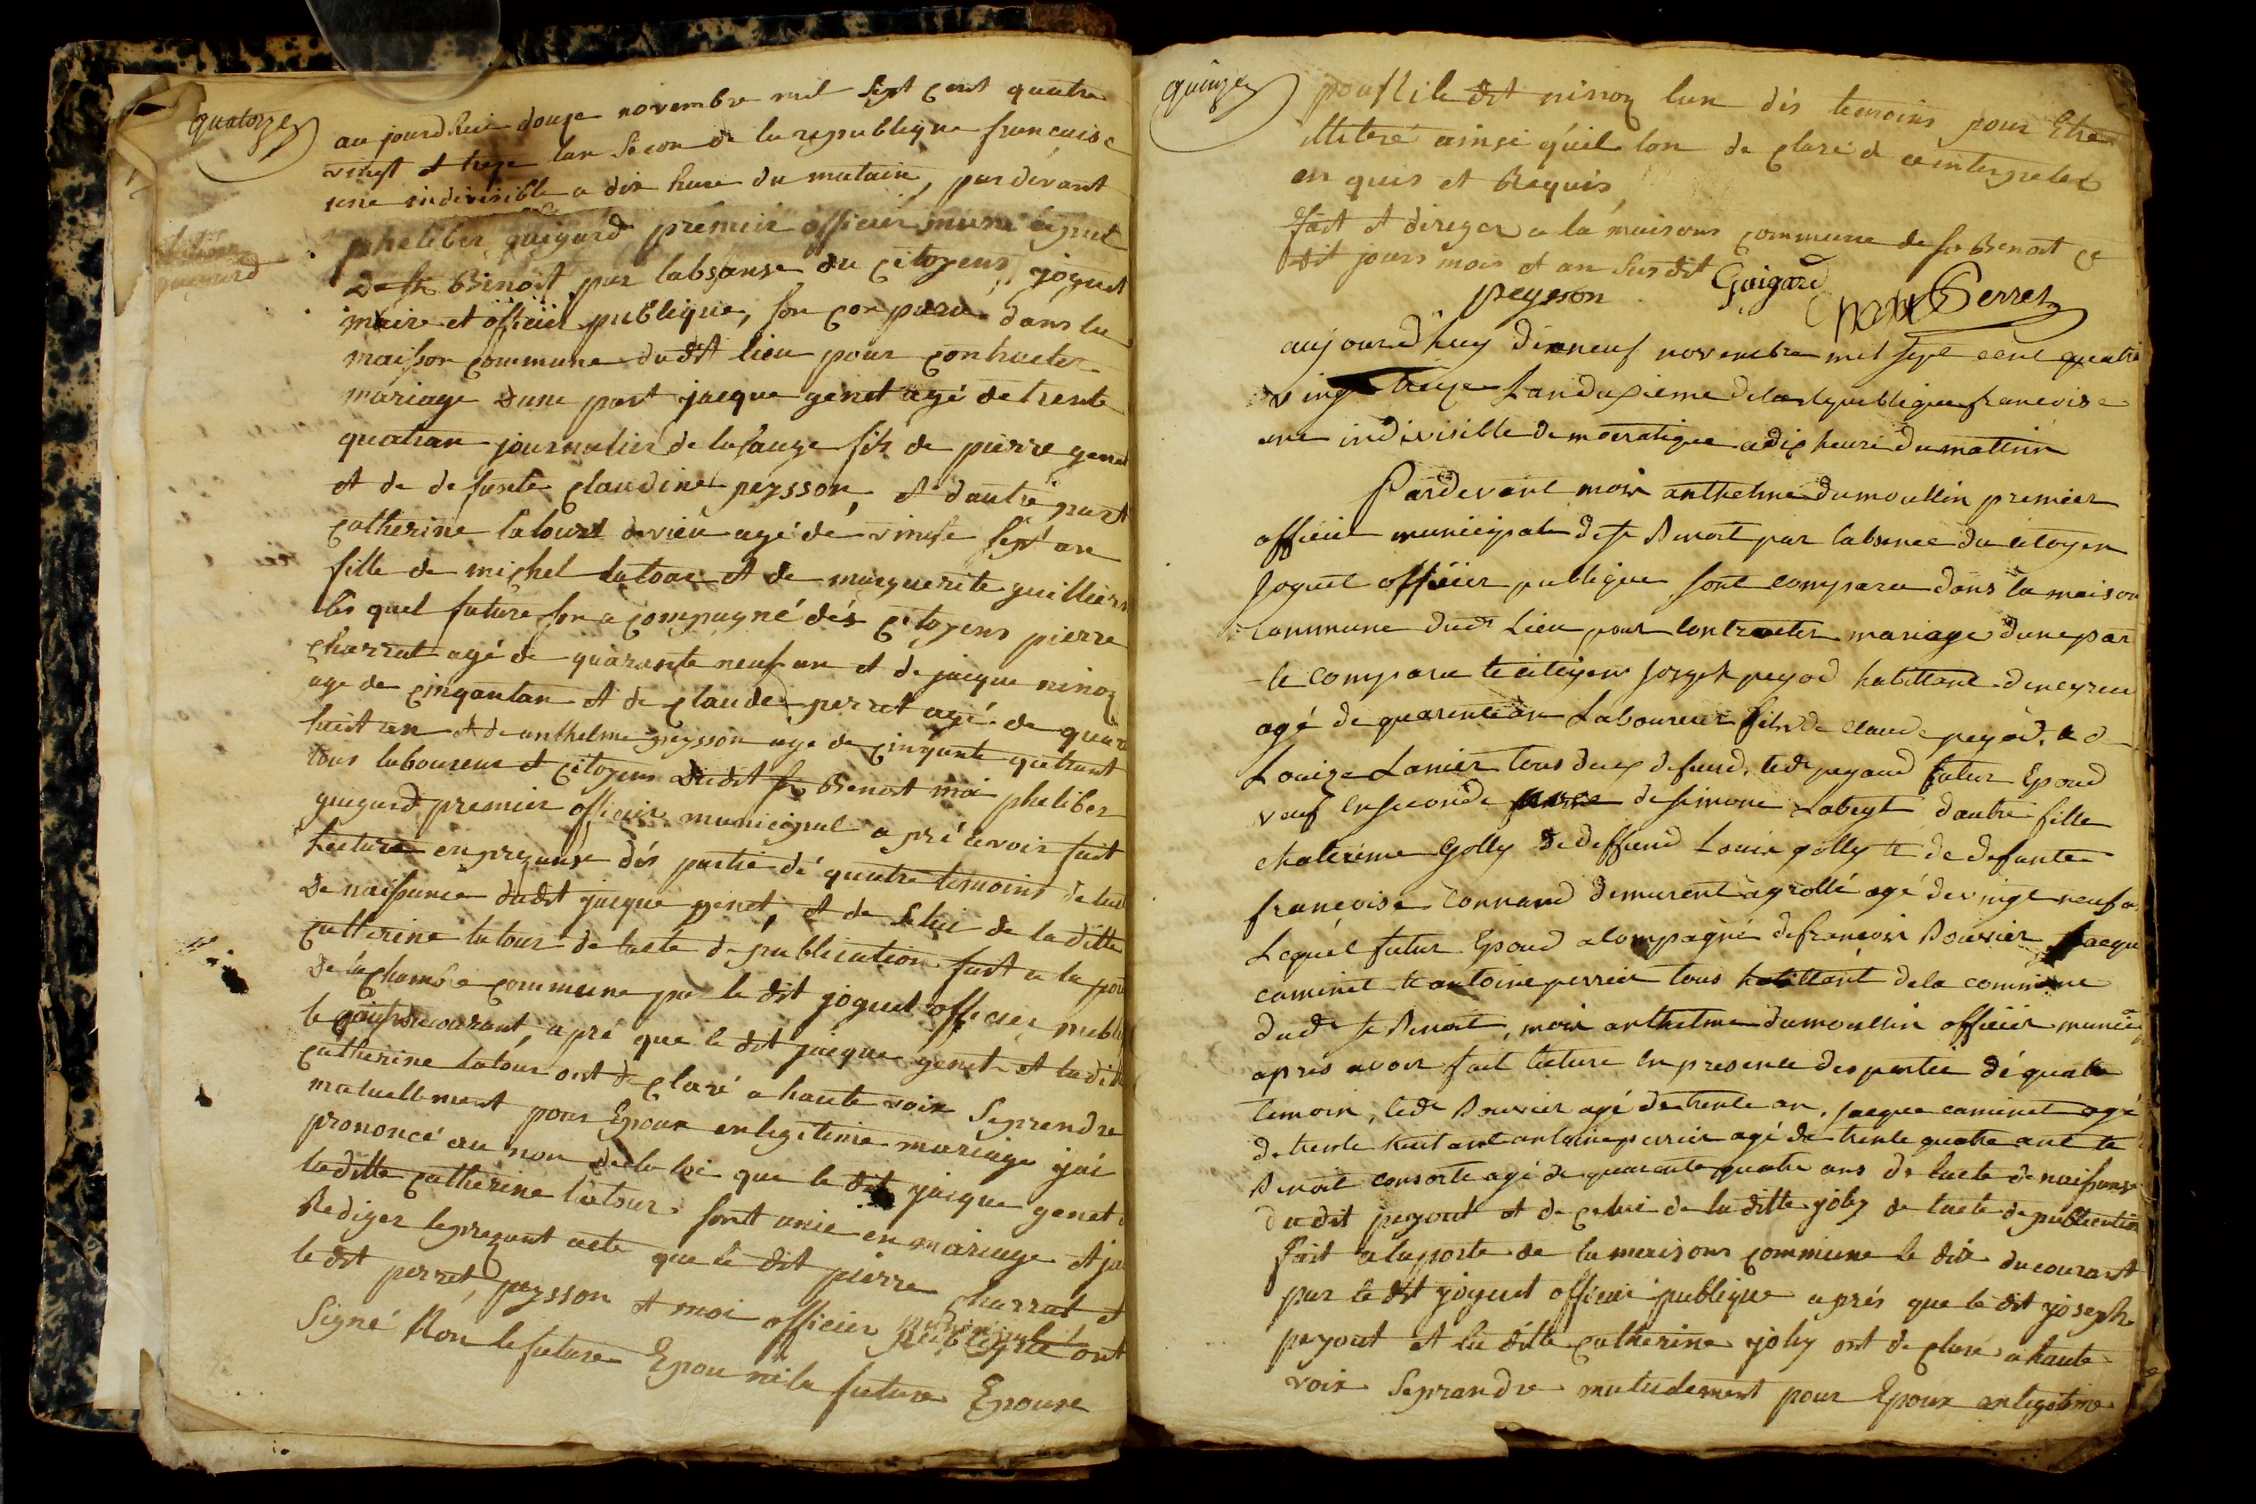 quatorze
au jourdhui douze novembre mil sept cent quatre
vingt et treze lan secon de la republique francaise
une indivisible a dix hure du matain, par devant
pheliber guigard premier officier municipal
de st Benoit par labsanse du citoyens joguet
maire et officier publique, son conparu dans la
maison commune dudit lieu pour contracter
mariage dune part jacque genet agé de trente
quatran journalier de lasauge fils de pierre genet
et de defunte claudine peysson, et dautre part
catherine latour devieu agé de vinte sept an
fille de michel latour et de marguerite guilliers
les quel future son acompagné dés citoyens pierre
charrat agé de quarante neuf an et de jacque ninoz
age de cinqantan et de claude perret agé de quar
huit an et de anthelme peysson age de cinqante quatrant
tous laboureur et citoyens dudit st Benoit moi pheliber
guigard premier officier municipal a pré avoir fait
lecture en prezanse dés partie dé quatre temoins de lact
de naissance dudit jacque genet, et de selui de la ditte
catterine latour de lacte de publication fait a la port
de la chambre commune par le dit joguet officier publi
le courant, apré que le dit jacque genet et la dit
catherine latour ont de claré a haute voix seprendre
matuellement pour Epoux en legitime mariage jai
prononcé au non de la loi que le dit jacque genet
ladite catherine latour sont unie en mariage et jai
Rediger leprezant acte que le dit pierre charrat et
le dit perret, peysson et moi officier publique ont
Signé Non le future Epou ni la future Epouse
quinze
ni le dit ninoz lun dés temoins pour Etre
illiteré ainsi quil lon de claré de ce interpelet
en quis et Requis
fait et direger a la maisons commune de st Benoit ce
dit jours mois et an susdit
peyson Guigard Perret
aujourdhuy dixneuf novembre mil sept cent quatre
vingt treize Lan duxieme dela Republique francoise
une indivisible democratique adix heure du mattin
Pardevant moix anthelme dumoullin premier
officier municipale de st Benoit par labsence du citoyen
Joguet officier publique sont comparu dans la maison
commune dudt Lieu pour contracter mariage dune par
le comparu le citoyen Joseph peyod habittant
agé de quarentean Laboureur fils de Claude peyod et d
Louize Lanier tous deux defund, ledt peyaud futur Epoud
veuf en seconde de simone Labeyt dautre fille
chaterime Golly de deffund Louis golly et de defunte
francoise Connand demurent agrollé agé de vingt neuf a
Lequel futur Epoud acompagné de francoix Bouvier Jacque
caminet et antoine perrier tous habittant dela commune
dudt st Benoit, moix anthelme dumoullin officier munici
apres avoir fait lecture en presence des partie dé quatre
temoin, ledt Bouvier agé de trente an, Jacque caminet agé
de trente huit ant antoine perrier agé de trente quatre ant et
Benoit consorte agé de quarante quatre ans de lacte de naissanse
du dit peyout et de celui de la ditte joly de lacte de publication
fait a la porte de la maisons commune le dix du courant
par le dit joguet officier publique aprés que le dit joseph
peyout et la ditte catherine joly ont de claré a haute
voix seprandre mutudement pour Epoux enlegitime